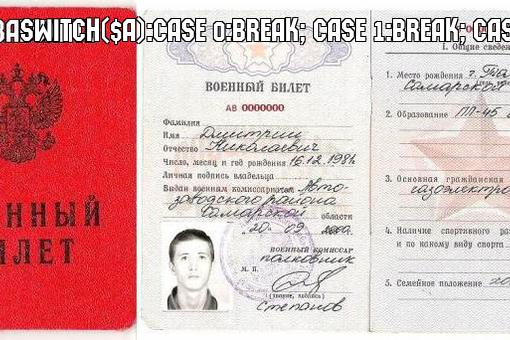 BASWITCH($A):CASE 0:BREAK; CASE 1:BREAK; CAS
ЕННЫЙ
ИЛЕТ
ВОЕННЫЙ БИЛЕТ
АВ 0000000
Фамилия
Имя Дмитрий
Отчество Николаевич
Число, месяц и год рождения 16.12.198
Личная подпись владельца
Выдан военным комиссариатом Авто-
заводского района
Самарской области
20 09
ВОЕННЫЙ КОМИССАР
полковник
М. П.
(звание, подпись)
Степанов
I. Общие сведе
1. Место рождения г. То
Самарской
2. Образование ПЛ-45
3. Основная гражданская
газоэлектро
4. Наличие спортивного раз
и по какому виду спорта
5. Семейное положение хо